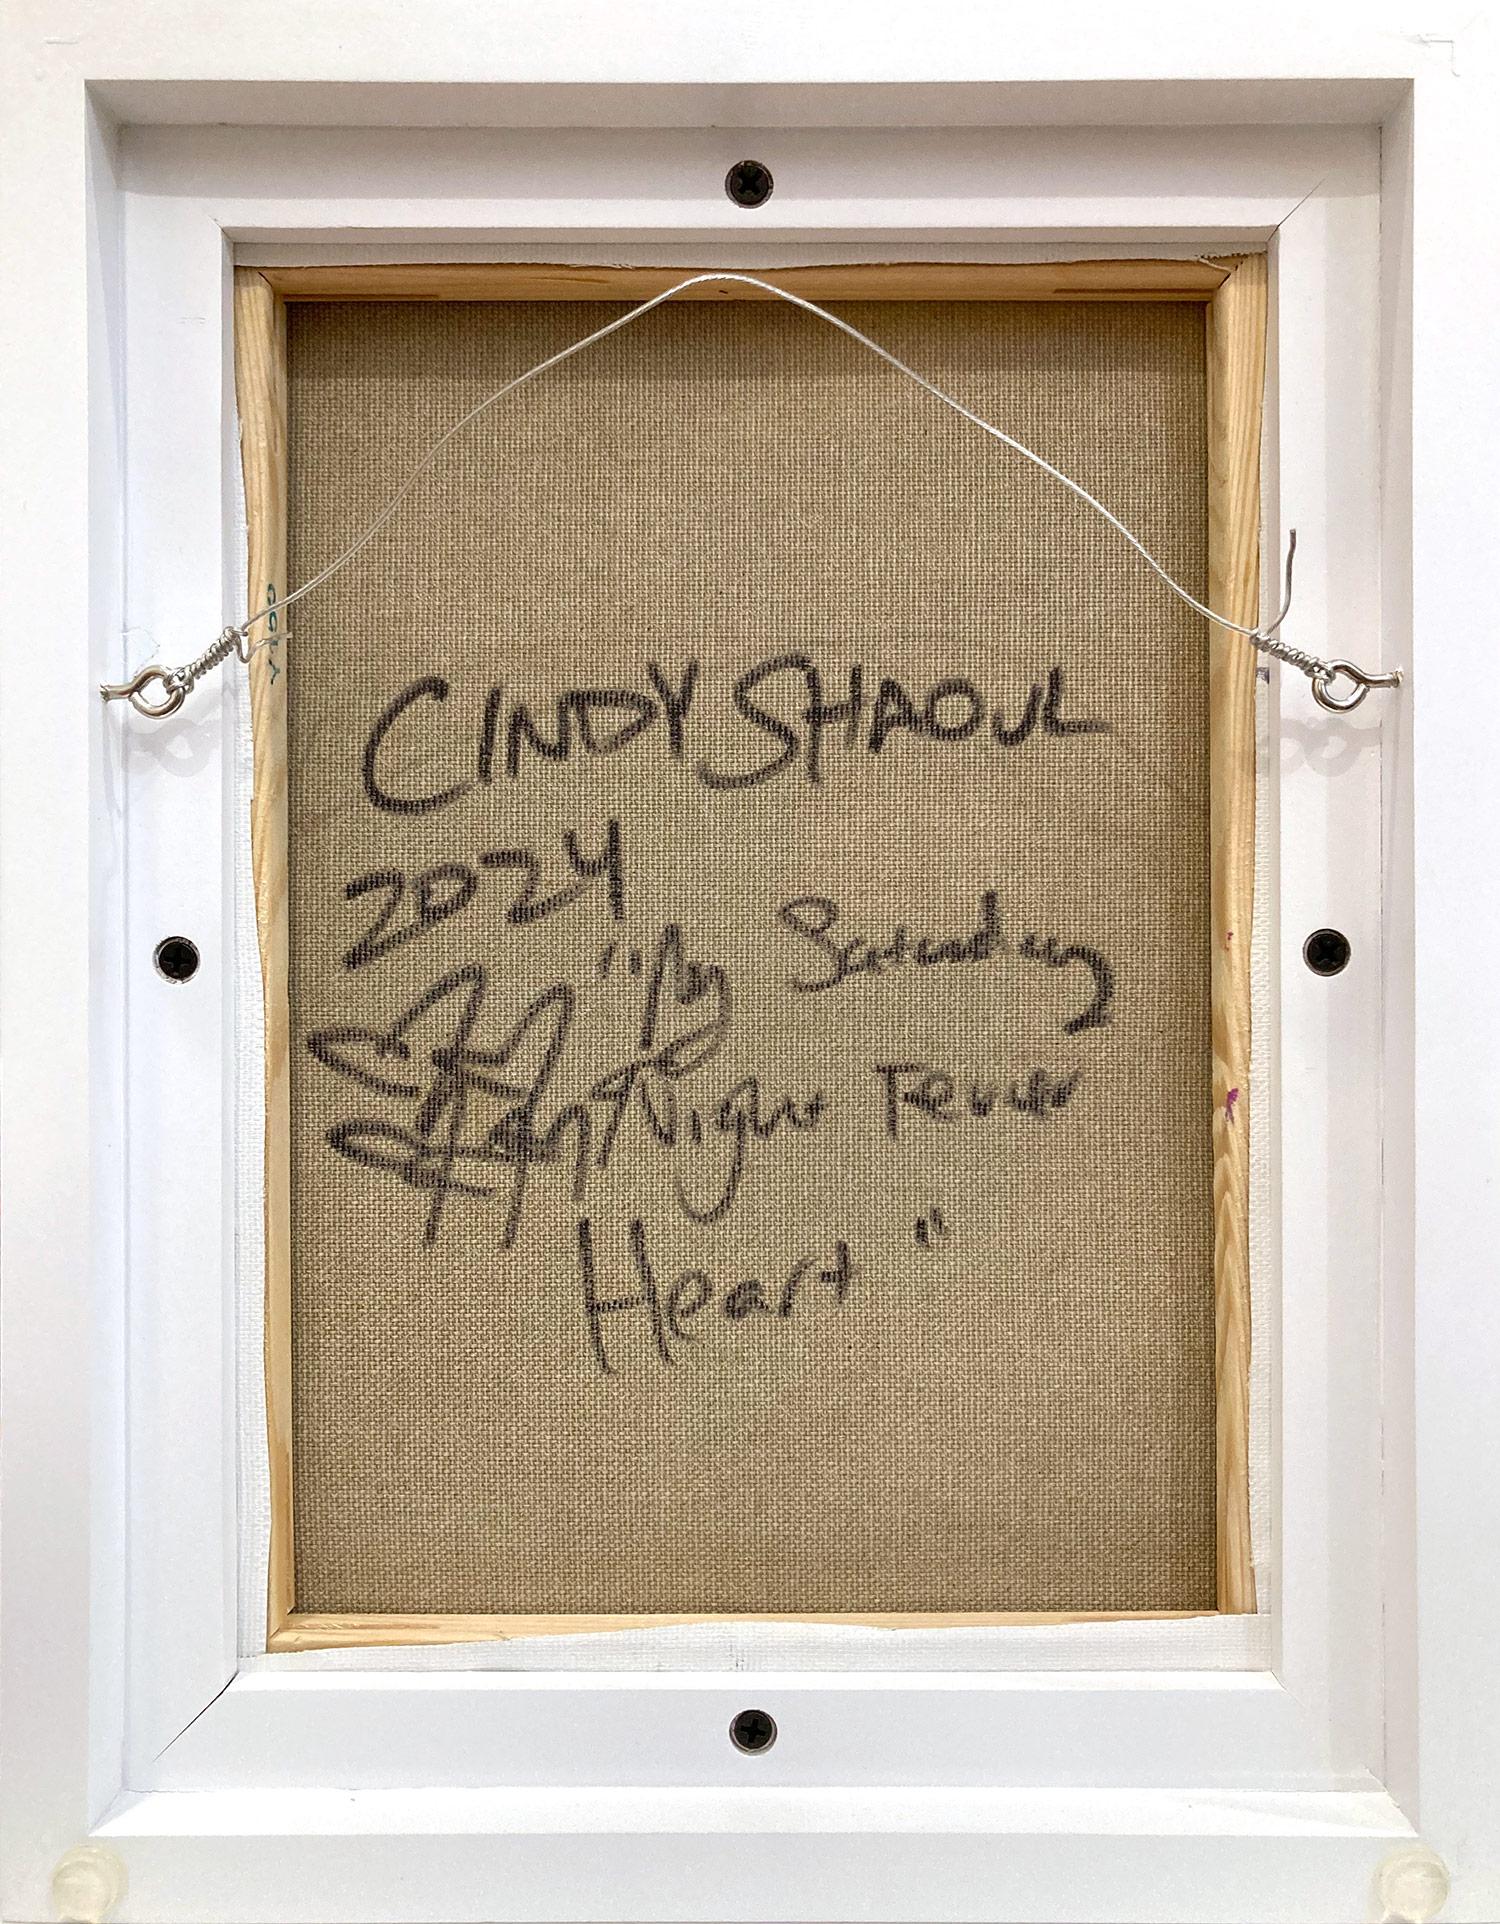 CINDY SHAOUL
2024
"My Saturday
Night Fever
Heart"